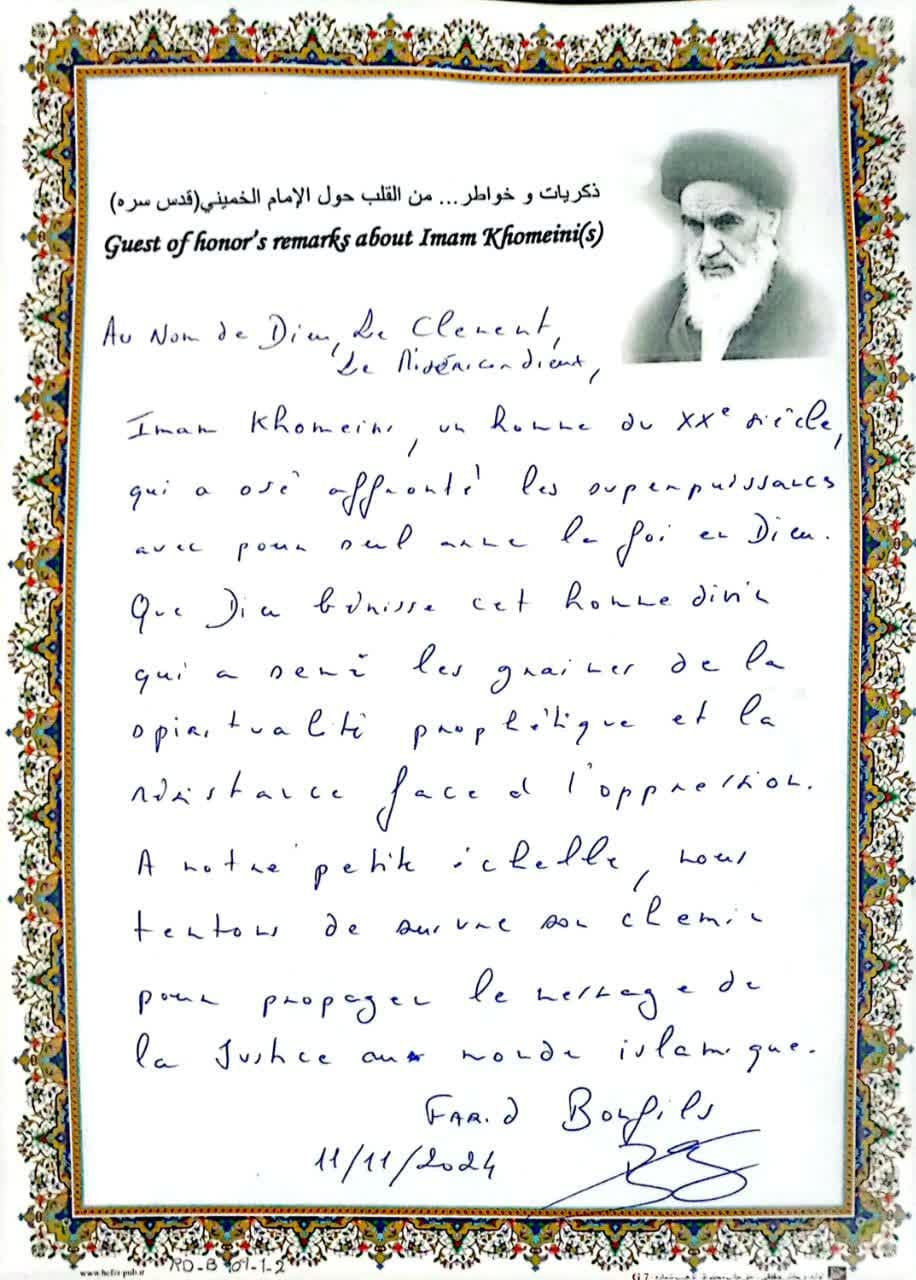 ذكريات و خواطر... من القلب حول الإمام الخميني(قدس سره)
Guest of honor's remarks about Imam Khomeini(s)
Au Nom de Dieu, Le Clement,
Le Miséricordieux,
Imam Khomeini, un homme du XXe siècle,
qui a osé affronté les superpuissances
avec pour seul arme la foi en Dieu.
Que Dieu bénisse cet homme divin
qui a semé les graines de la
spiritualité prophétique et la
résistance face à l'oppression.
A notre petite échelle, nous
tentons de suivre son chemin
pour propager le message de
la Justice au monde islamique.
Farid Bonfils
11/11/2024
www.hefiz-pub.ir
RD-B 01-1-2